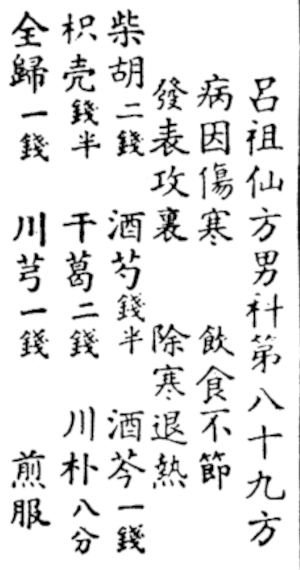 呂祖仙方男科第八十九方
病因傷寒 飲食不節
發表攻裏 除寒退熱
柴胡二錢 酒芍錢半 酒芩一錢
枳壳錢半 干葛二錢 川朴八分
全歸一錢 川芎一錢 煎服